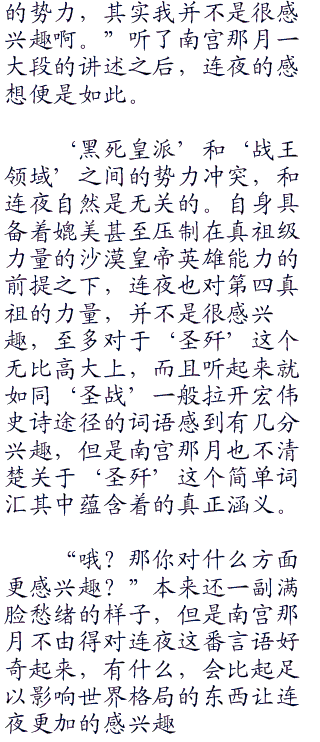 的势力，其实我并不是很感
兴趣啊。”听了南宫那月一
大段的讲述之后，连夜的感
想便是如此。
‘黑死皇派’和‘战王
领域’之间的势力冲突，和
连夜自然是无关的。自身具
备着媲美甚至压制在真祖级
力量的沙漠皇帝英雄能力的
前提之下，连夜也对第四真
祖的力量，并不是很感兴
趣，至多对于‘圣歼’这个
无比高大上，而且听起来就
如同‘圣战’一般拉开宏伟
史诗途径的词语感到有几分
兴趣，但是南宫那月也不清
楚关于‘圣歼’这个简单词
汇其中蕴含着的真正涵义。
“哦？那你对什么方面
更感兴趣？”本来还一副满
脸愁绪的样子，但是南宫那
月不由得对连夜这番言语好
奇起来，有什么，会比起足
以影响世界格局的东西让连
夜更加的感兴趣